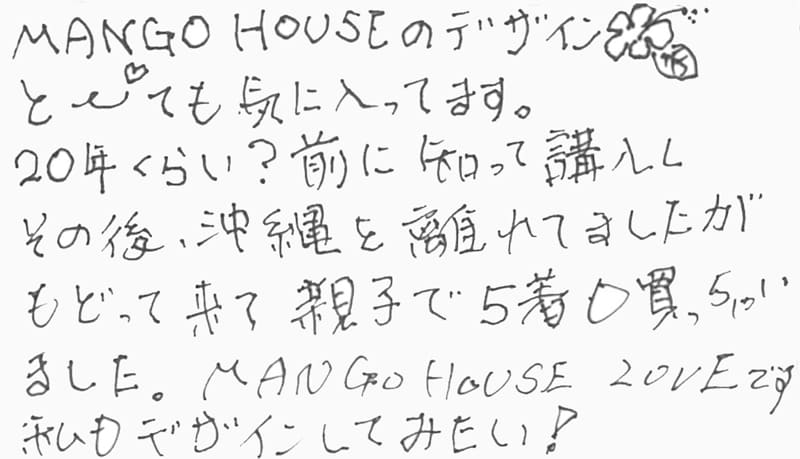 MANGO HOUSEのデザイン
と〜♡ても気に入ってます。
20年くらい?前に知って講入し
その後、沖縄を離れてましたが
もどって来て親子で5着買っちゃい
ました。MANGO HOUSE LOVEです
私もデザインしてみたい!